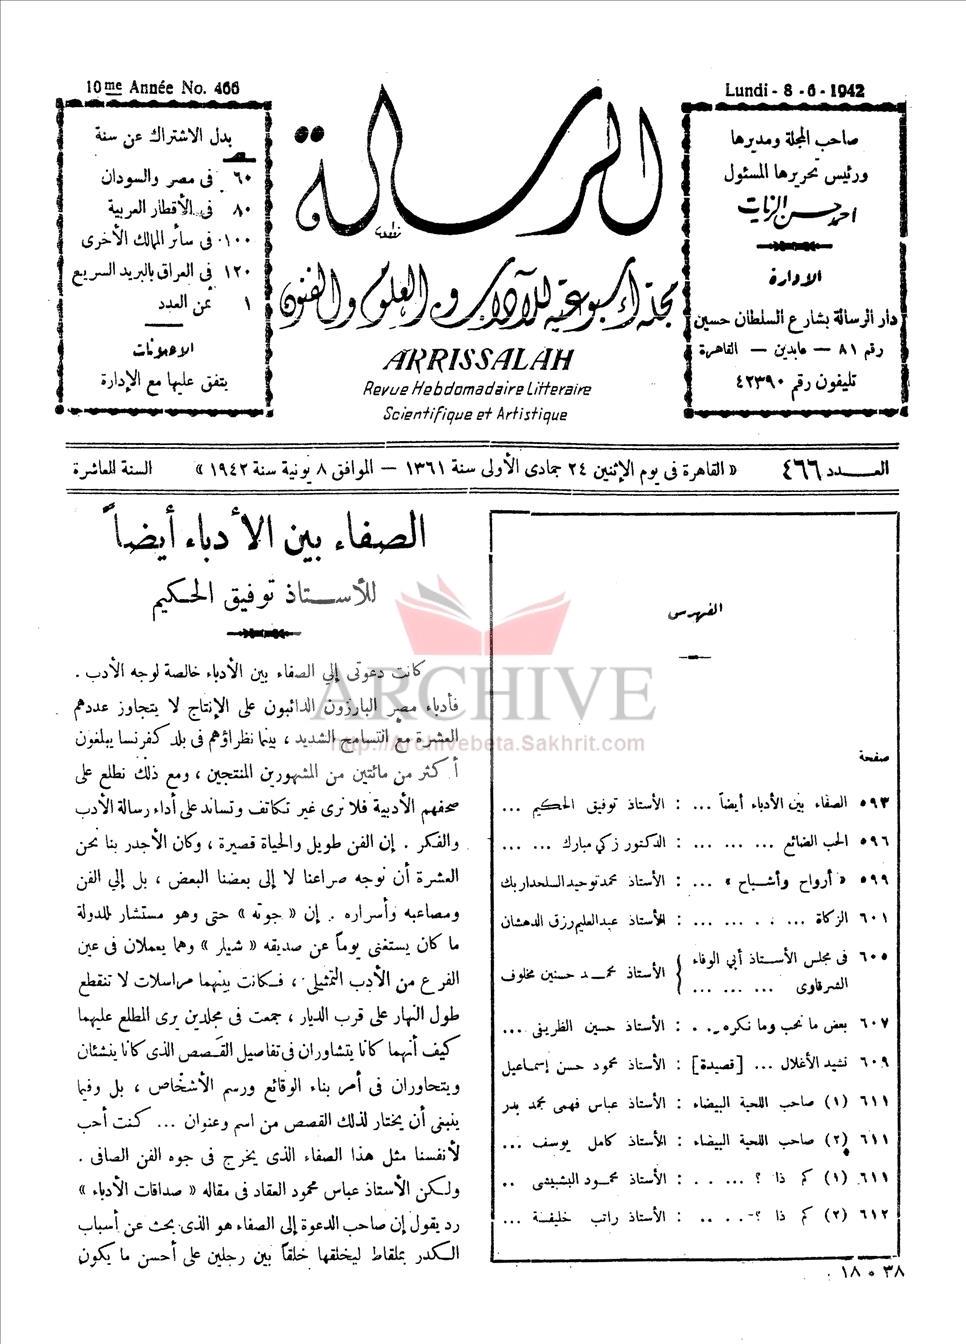 10me Année No. 466
Lundi - 8 - 6 - 1942
صاحب المجلة ومديرها
ورئيس تحريرها المسئول
احمد حسن الزيات
الادارة
دار الرسالة بشارع السلطان حسين
رقم ٨١ — عابدين — القاهرة
تليفون رقم ٤٢٣٩٠
الرسالة
مجلة أسبوعية للآداب والعلوم والفنون
ARRISSALAH
Revue Hebdomadaire Litteraire
Scientifique et Artistique
بدل الاشتراك عن سنة
٦٠ فى مصر والسودان
٨٠ فى الأقطار العربية
١٠٠ فى سائر الممالك الأخرى
١٢٠ فى العراق بالبريد السريع
١ ثمن العدد
الاعلانات
يتفق عليها مع الإدارة
العــدد ٤٦٦ « القاهرة فى يوم الإثنين ٢٤ جمادى الأولى سنة ١٣٦١ — الموافق ٨ يونية سنة ١٩٤٢ » السنة العاشرة
الفهرس
صفحة
٥٩٣ الصفاء بين الأدباء أيضاً ... : الأستاذ توفيق الحكيم ...
٥٩٦ الحب الضائع ... ... ... : الدكتور زكي مبارك ... ...
٥٩٩ « أرواح وأشباح » ... : الأستاذ محمد توحيد السلحدار بك
٦٠١ الزكاة ... . ... ... : الأستاذ عبد العليم رزق الدهشان
٦٠٥ فى مجلس الأستاذ أبي الوفاء الشرقاوى ... ... ... } الأستاذ محمد حسنين مخلوف
٦٠٧ بعض ما نحب وما نكره ... : الأستاذ حسين الظريفى ...
٦٠٩ نشيد الأغلال ... [قصيدة] : الأستاذ محمود حسن إسماعيل
٦١١ (١) صاحب اللحية البيضاء : الأستاذ عباس فهمى محمد بدر
٦١١ (٢) صاحب اللحية البيضاء : الأستاذ كامل يوسف ...
٦١١ (١) كم ذا ؟ ... ... : الأستاذ محمود البشبيشى ..
٦١٢ (٢) كم ذا ؟ ... .. : الأستاذ راتب خليفة ...
١٨ ٥ ٣٨
الصفاء بين الأدباء أيضاً
للأستاذ توفيق الحكيم
كانت دعوتى إلى الصفاء بين الأدباء خالصة لوجه الأدب .
فأدباء مصر البارزون الدائبون على الإنتاج لا يتجاوز عددهم
العشرة مع التسامح الشديد ، بينما نظراؤهم فى بلد كفرنسا يبلغون
أكثر من مائتين من المشهورين المنتجين ، ومع ذلك نطلع على
صحفهم الأدبية فلا نرى غير تكاتف وتساند على أداء رسالة الأدب
والفكر . إن الفن طويل والحياة قصيرة ، وكان الأجدر بنا نحن
العشرة أن نوجه صراعنا لا إلى بعضنا البعض ، بل إلى الفن
ومصاعبه وأسراره . إن « جوته » حتى وهو مستشار للدولة
ما كان يستغنى يوماً عن صديقه « شيلر » وهما يعملان فى عين
الفرع من الأدب التمثيلى ، فكانت بينهما مراسلات لا تنقطع
طول النهار على قرب الديار ، جمعت فى مجلدين يرى المطلع عليهما
كيف أنهما كانا يتشاوران فى تفاصيل القصص الذى كانا ينشئان
ويتحاوران فى أمر بناء الوقائع ورسم الأشخاص ، بل وفيما
ينبغى أن يختار لذلك القصص من اسم وعنوان ... كنت أحب
لأنفسنا مثل هذا الصفاء الذى يخرج فى جوه الفن الصافى .
ولكن الأستاذ عباس محمود العقاد فى مقاله « صداقات الأدباء »
رد يقول إن صاحب الدعوة إلى الصفاء هو الذى بحث عن أسباب
الكدر بملقاط ليخلقها خلقاً بين رجلين على أحسن ما يكون
ARCHIVE
http://Archivebeta.Sakhrit.com